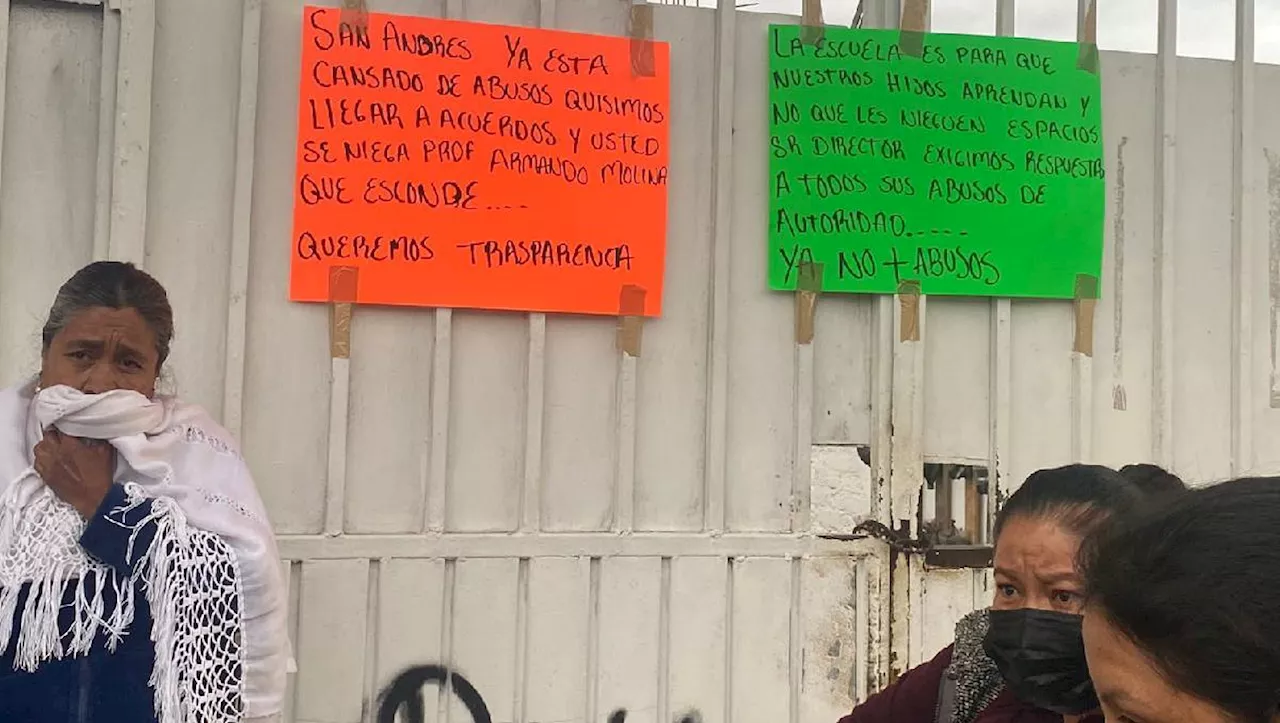 SAN ANDRES YA ESTA
CANSADO DE ABUSOS QUISIMOS
LLEGAR A ACUERDOS Y USTED
SE NIEGA PROF ARMANDO MOLINA
QUE ESCONDE....
QUEREMOS TRASPARENCIA
LA ESCUELA ES PARA QUE
NUESTROS HIJOS APRENDAN Y
NO QUE LES NIEGUEN ESPACIOS
SR DIRECTOR EXIGIMOS RESPUESTA
A TODOS SUS ABUSOS DE
AUTORIDAD.....
YA NO + ABUSOS